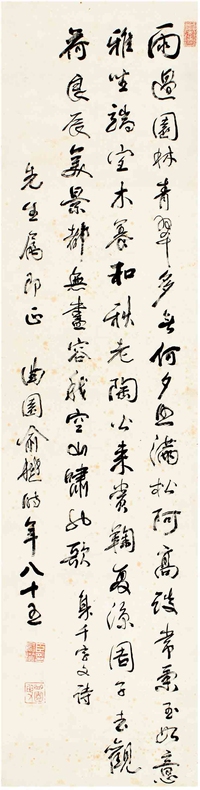 雨過園林青翠多無何夕照滿松阿高談常秉玉如意
雅坐端宜木養和秋老陶公來賞鞠夏涼周子去觀
荷良辰美景都無盡容我空山嘯也歌 集千字文詩
先生屬即正 曲園俞樾時年八十五